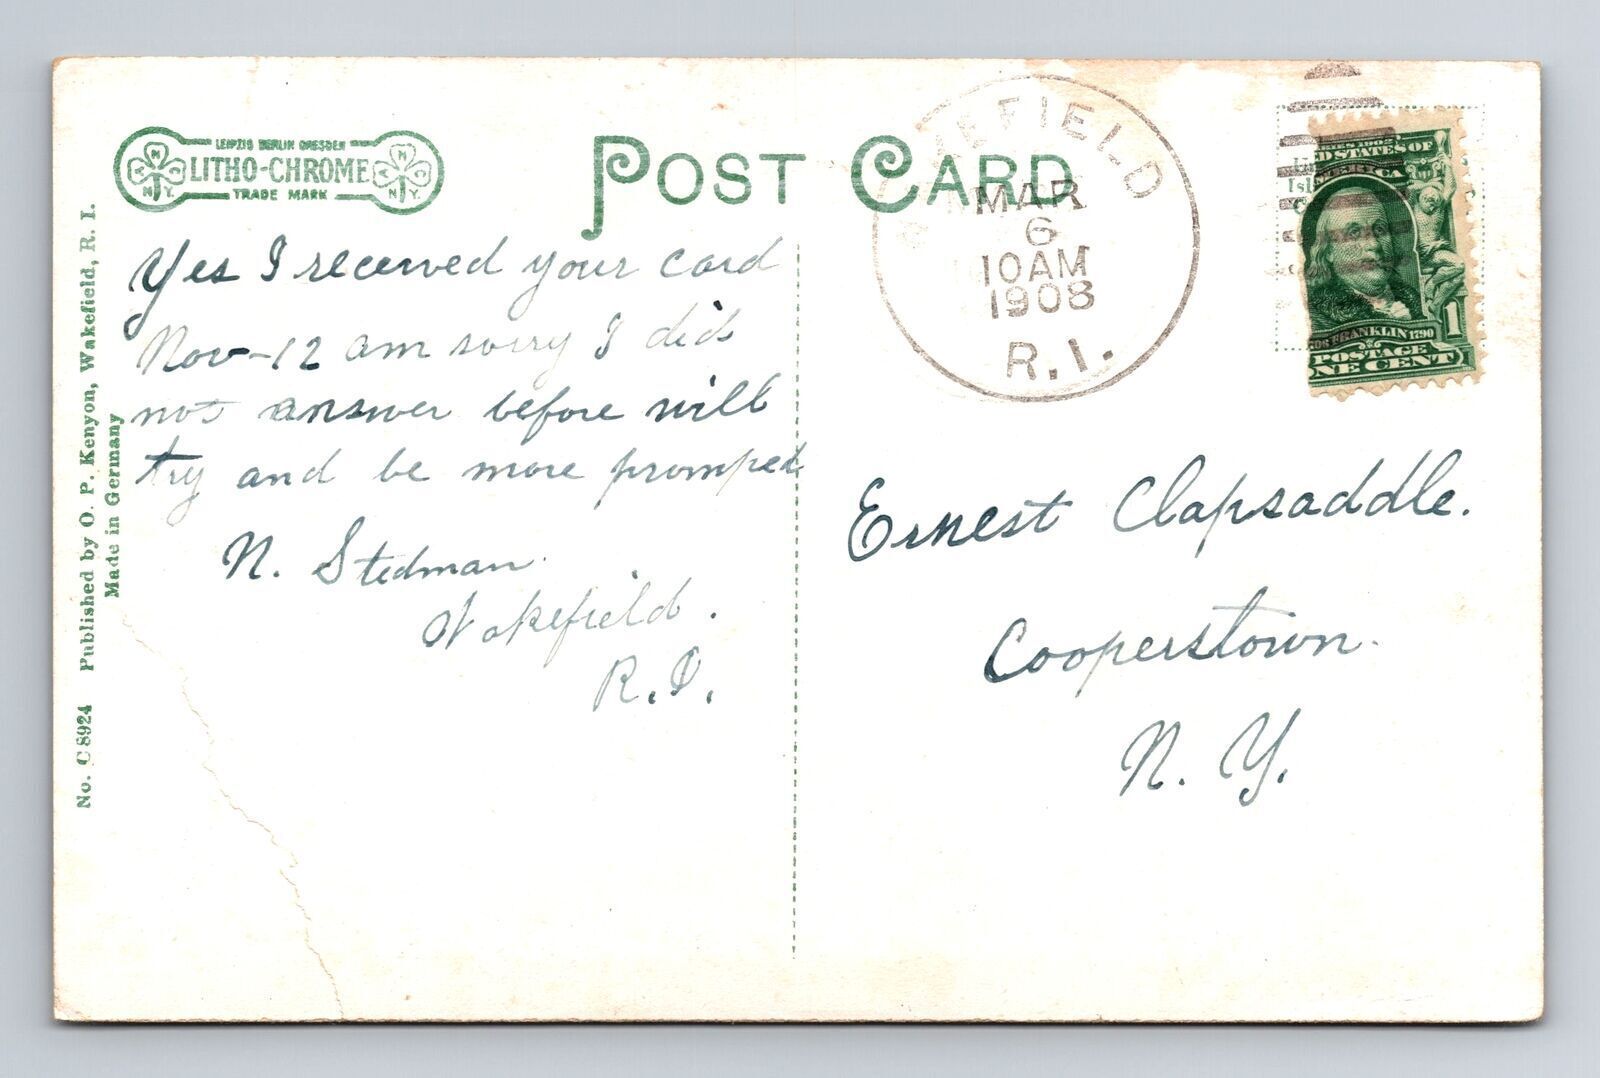 LEIPZIG BERLIN DRESDEN
LITHO-CHROME
TRADE MARK
N.Y.
N.Y.
POST CARD
WAKEFIELD
MAR
6
10 AM
1908
R.I.
D STATES OF
AMERICA
FRANKLIN 1790
1
POSTAGE
NE CENT
Yes I received your card
Nov-12 am sorry I did
not answer before will
try and be more promped
N. Stedman.
Wakefield.
R.I.
Ernest Clapsaddle.
Cooperstown.
N. Y.
No. C 8924 Published by O. P. Kenyon, Wakefield, R. I.
Made in Germany